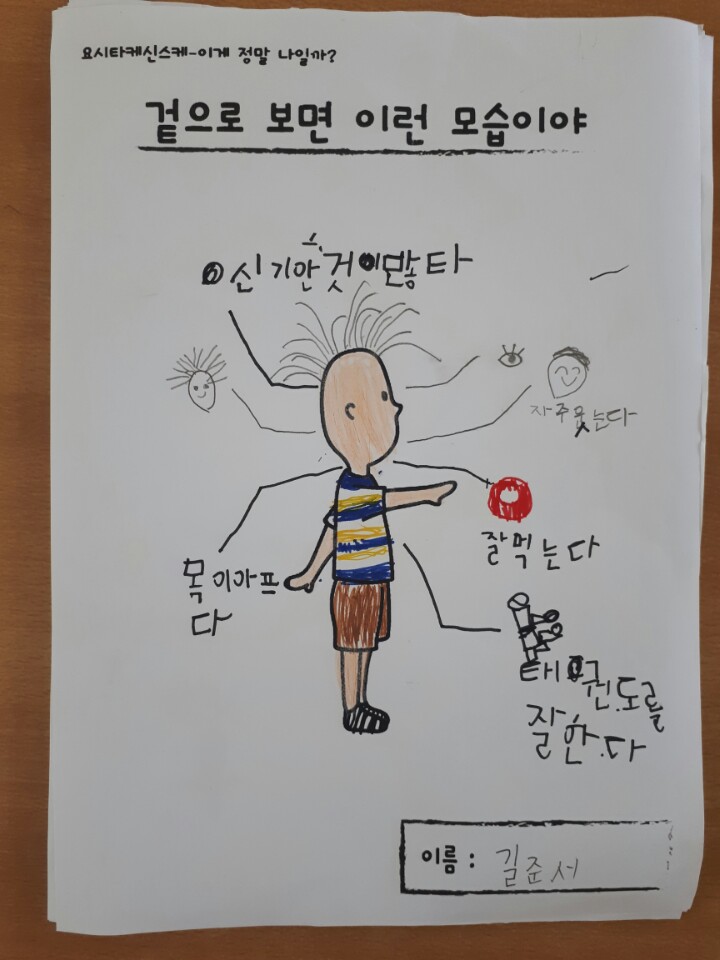 요시타케신스케-이게 정말 나일까?
겉으로 보면 이런 모습이야
신기한 것이많타
자주웃는다
잘먹는다
목이아프
다
태권도를
잘한다
이름 : 길준서